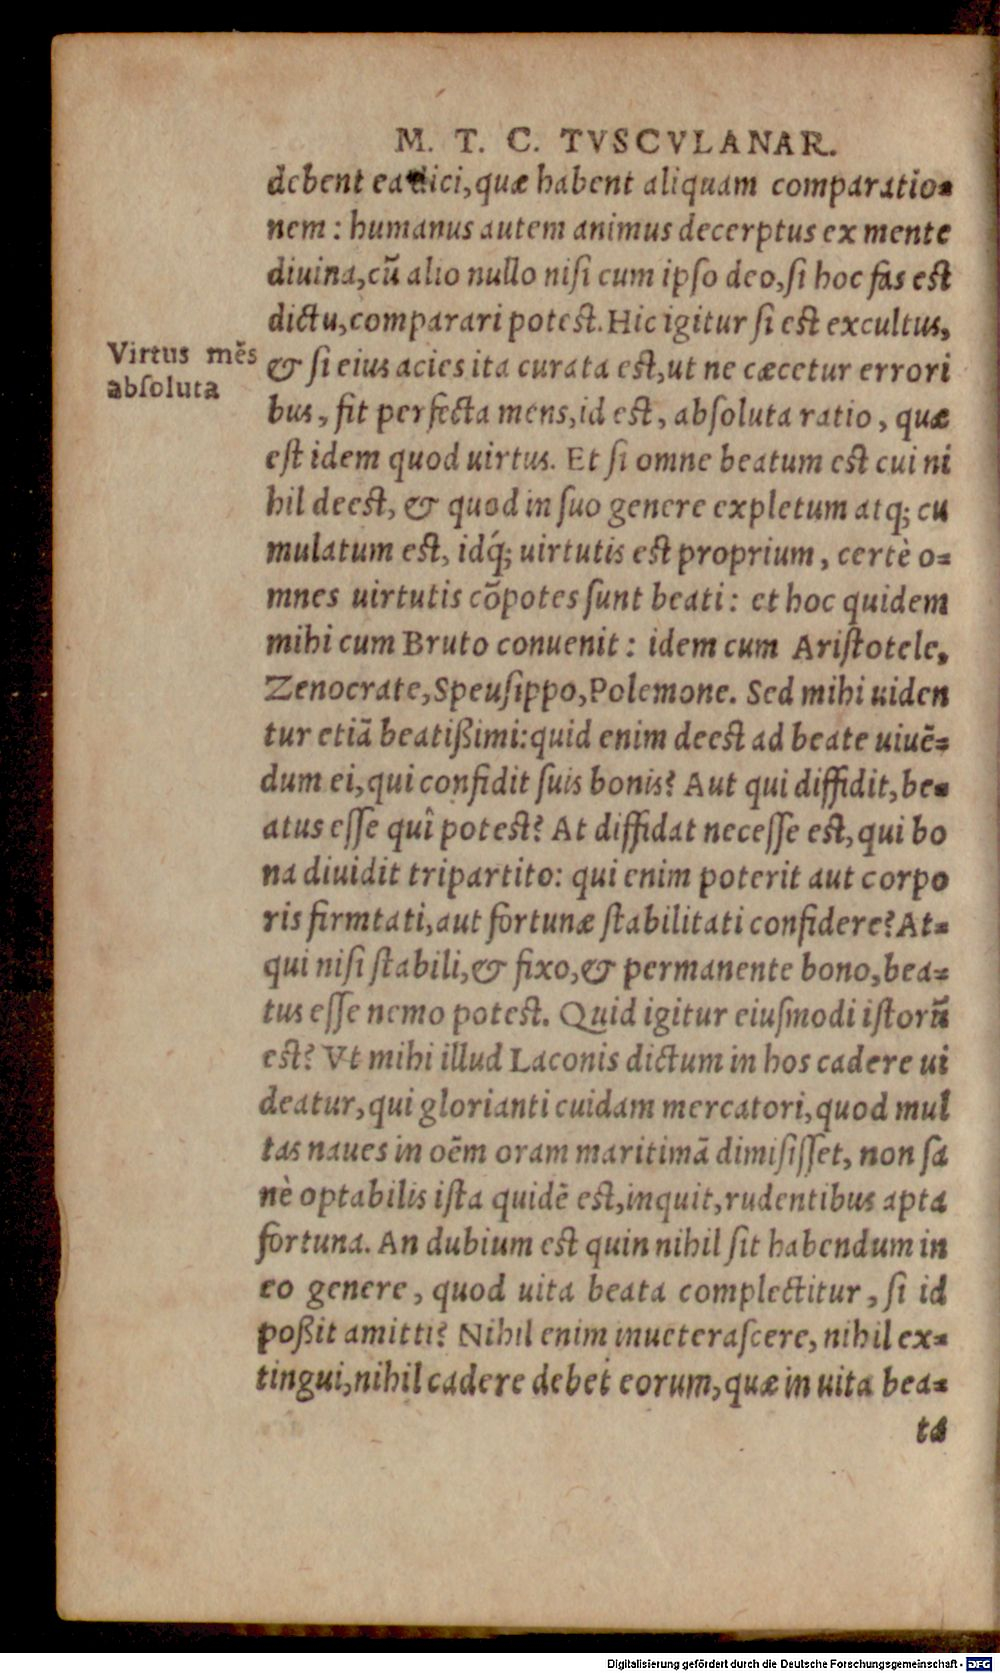 M. T. C. TVSCVLANAR.
debent ea dici, quæ habent aliquam comparatio-
nem: humanus autem animus decerptus ex mente
diuina, cũ alio nullo nisi cum ipso deo, si hoc fas est
dictu, comparari potest. Hic igitur si est excultus,
Virtus mẽs
absoluta
& si eius acies ita curata est, ut ne cæcetur errori
bus, fit perfecta mens, id est, absoluta ratio, quæ
est idem quod uirtus. Et si omne beatum est cui ni
hil deest, & quod in suo genere expletum atq; cu
mulatum est, idq́; uirtutis est proprium, certè o-
mnes uirtutis cõpotes sunt beati: et hoc quidem
mihi cum Bruto conuenit: idem cum Aristotele,
Zenocrate, Speusippo, Polemone. Sed mihi uiden
tur etiã beatißimi: quid enim deest ad beate uiuẽ-
dum ei, qui confidit suis bonis? Aut qui diffidit, be-
atus esse quî potest? At diffidat necesse est, qui bo
na diuidit tripartito: qui enim poterit aut corpo
ris firmtati, aut fortunæ stabilitati confidere? At-
qui nisi stabili, & fixo, & permanente bono, bea-
tus esse nemo potest. Quid igitur eiusmodi istorũ
est? Vt mihi illud Laconis dictum in hos cadere ui
deatur, qui glorianti cuidam mercatori, quod mul
tas naues in oẽm oram maritimã dimisisset, non sa
nè optabilis ista quidẽ est, inquit, rudentibus apta
fortuna. An dubium est quin nihil sit habendum in
eo genere, quod uita beata complectitur, si id
poßit amitti? Nihil enim inueterascere, nihil ex-
tingui, nihil cadere debet eorum, quæ in uita bea-
ta
Digitalisierung gefördert durch die Deutsche Forschungsgemeinschaft - DFG